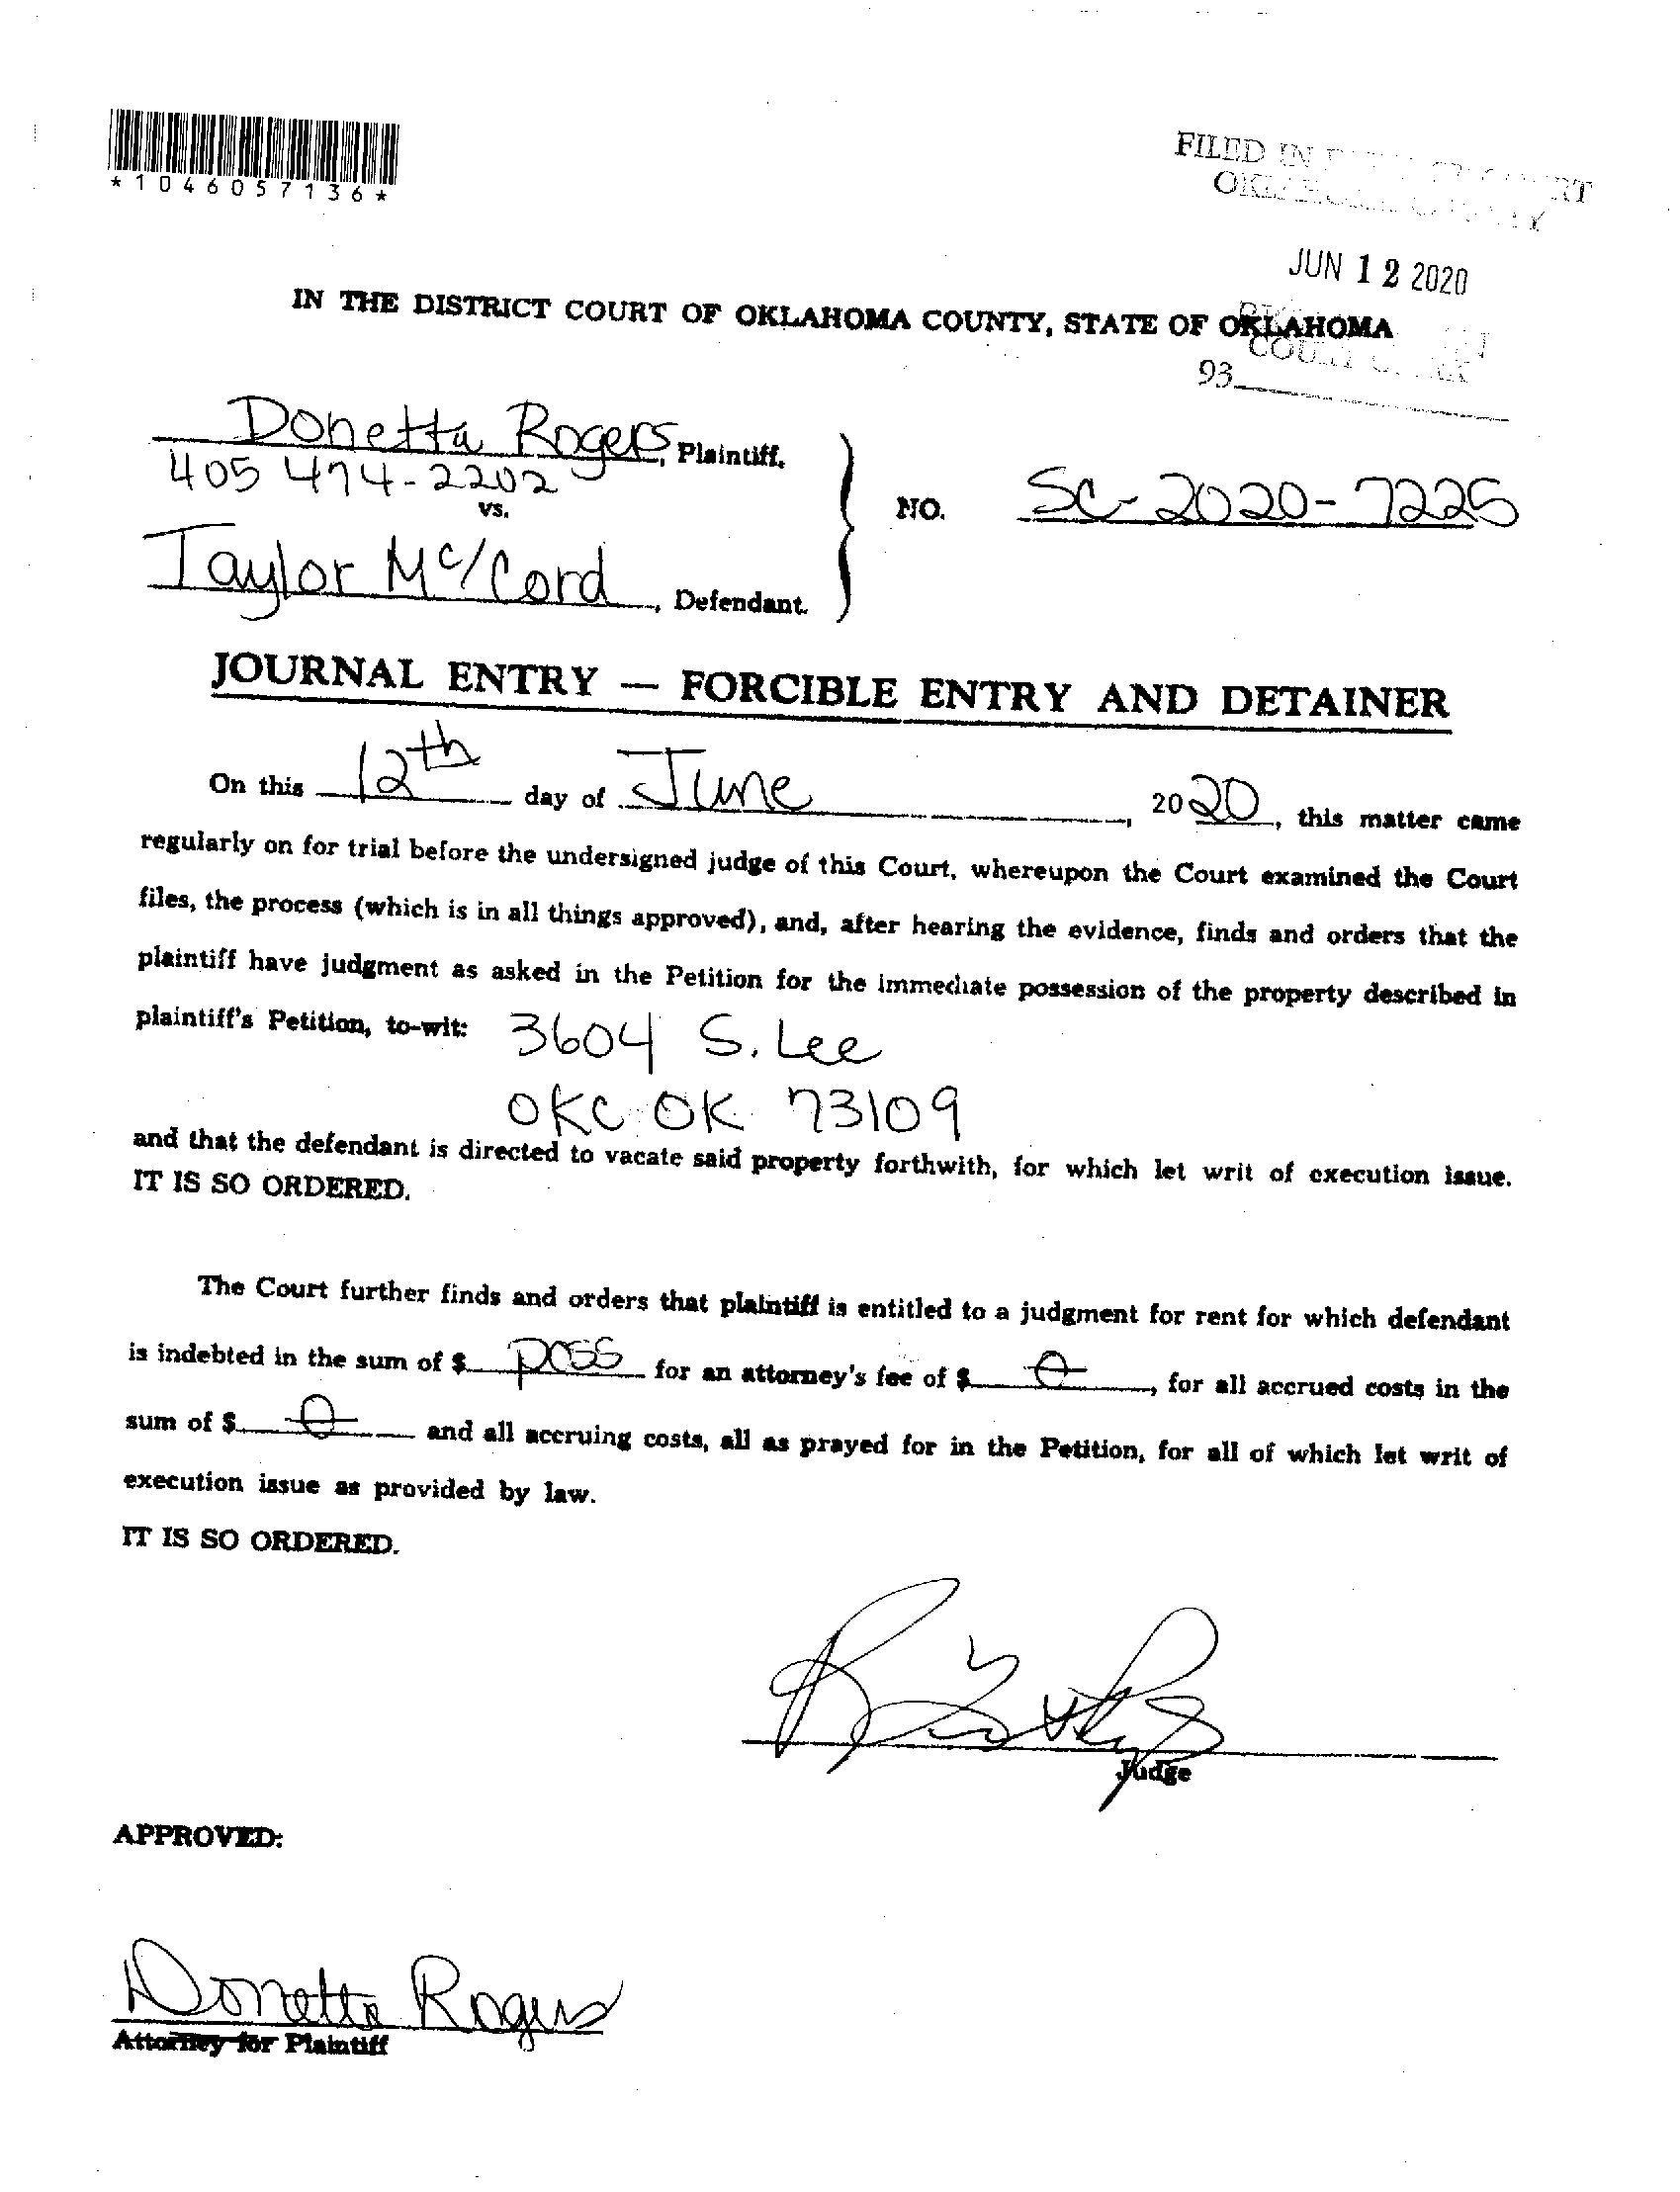 *1046057136*
FILED IN
JUN 12 2020
IN THE DISTRICT COURT OF OKLAHOMA COUNTY, STATE OF OKLAHOMA
93
Donetta Rogers, Plaintiff,
405 474-2202
vs.
NO. SC-2020-7225
Taylor Mc/Cord, Defendant.
JOURNAL ENTRY — FORCIBLE ENTRY AND DETAINER
On this 12th day of June, 2020, this matter came
regularly on for trial before the undersigned judge of this Court, whereupon the Court examined the Court
files, the process (which is in all things approved), and, after hearing the evidence, finds and orders that the
plaintiff have judgment as asked in the Petition for the immediate possession of the property described in
plaintiff's Petition, to-wit: 3604 S. Lee
OKC OK 73109
and that the defendant is directed to vacate said property forthwith, for which let writ of execution issue.
IT IS SO ORDERED.
The Court further finds and orders that plaintiff is entitled to a judgment for rent for which defendant
is indebted in the sum of $ poss for an attorney's fee of $ 0, for all accrued costs in the
sum of $ 0 and all accruing costs, all as prayed for in the Petition, for all of which let writ of
execution issue as provided by law.
IT IS SO ORDERED.
Judge
APPROVED:
Donetta Rogers
Attorney for Plaintiff